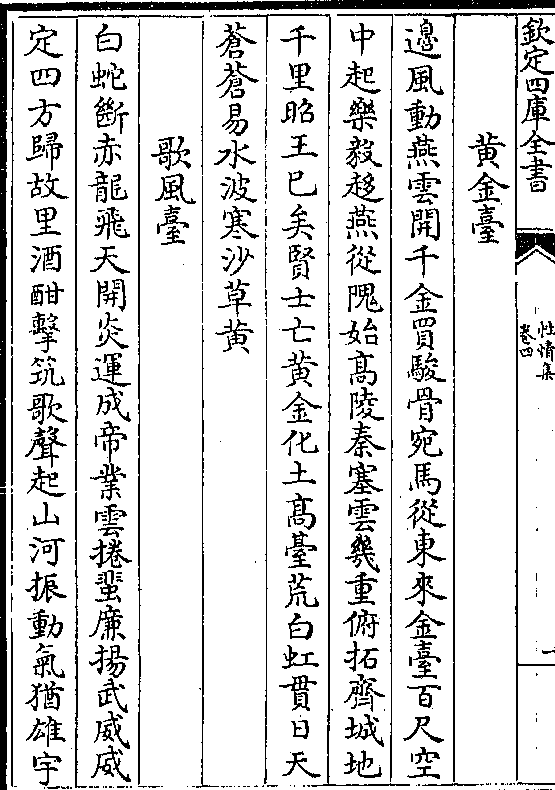 欽定四庫全書
性情集
卷四
一
黄金臺
邉風動燕雲開千金買駿骨宛馬從東來金臺百尺空
中起樂毅趍燕從隗始髙陵秦塞雲幾重俯拓齊城地
千里昭王已矣賢士亡黄金化土髙臺荒白虹貫日天
蒼蒼易水波寒沙草黄
歌風臺
白蛇斷赤龍飛天開炎運成帝業雲捲蜚廉揚武威威
定四方歸故里酒酣擊筑歌聲起山河振動氣猶雄宇